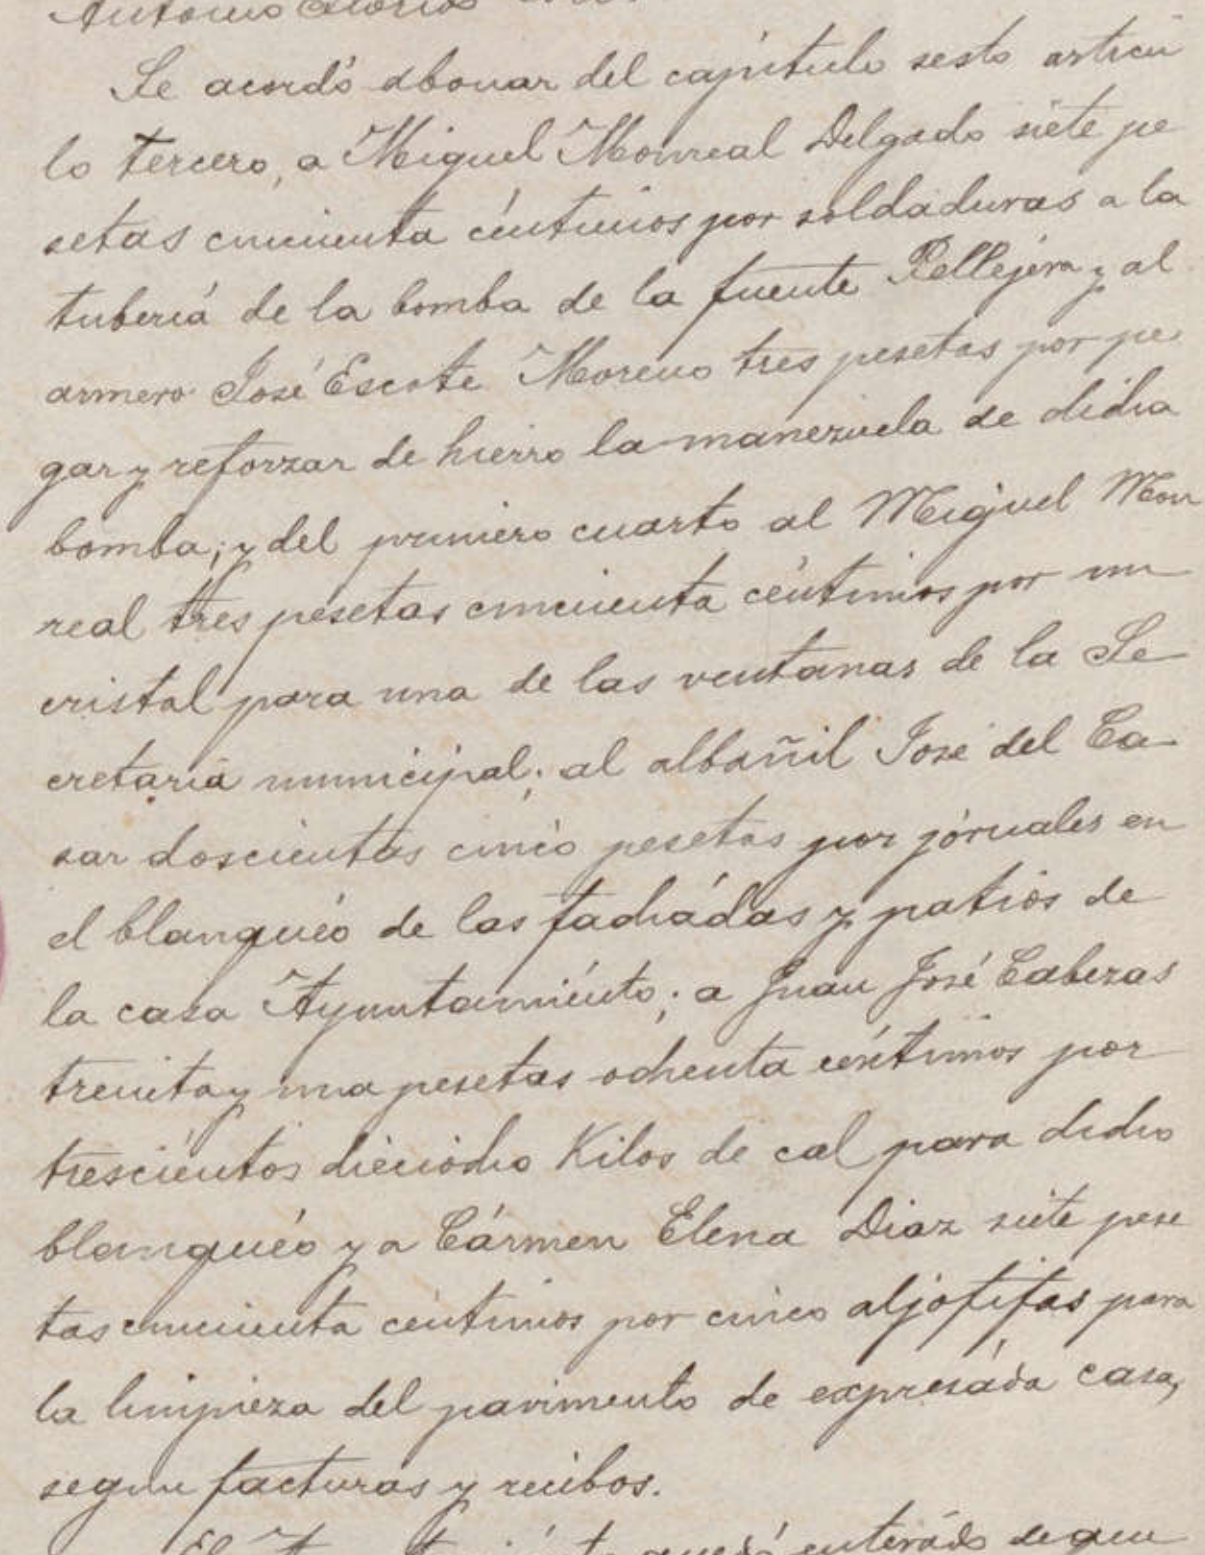 Antonio
Se acordó abonar del capitulo sesto articu
lo tercero, a Miguel Monreal Delgado siete pe
setas cincuenta céntimos por soldaduras a la
tubería de la bomba de la fuente Pellejera y al
armero José Escote Moreno tres pesetas por pe
gar y reforzar de hierro la manezuela de dicha
bomba; y del primero cuarto al Miguel Mon
real tres pesetas cincuenta céntimos por un
cristal para una de las ventanas de la Se
cretaria municipal; al albañil José del Ca
sar doscientas cinco pesetas por jornales en
el blanquéo de las fachadas y patios de
la casa Ayuntamiento; a Juan José Cabezas
treinta y una pesetas ochenta céntimos por
trescientos dieciocho Kilos de cal para dicho
blanquéo y a Cármen Elena Diaz siete pese
tas cincuenta céntimos por cinco aljofifas para
la limpieza del pavimento de expresada casa,
segun facturas y recibos.
El quedó enterado de que